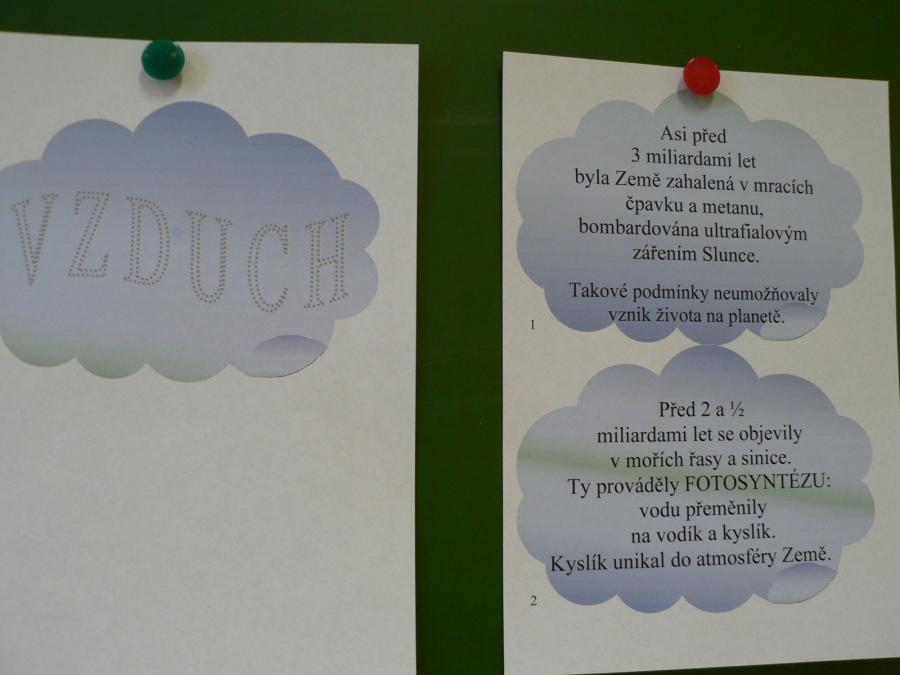 VZDUCH
Asi před
3 miliardami let
byla Země zahalená v mracích
čpavku a metanu,
bombardována ultrafialovým
zářením Slunce.
Takové podmínky neumožňovaly
vznik života na planetě.
1
Před 2 a ½
miliardami let se objevily
v mořích řasy a sinice.
Ty prováděly FOTOSYNTÉZU:
vodu přeměnily
na vodík a kyslík.
Kyslík unikal do atmosféry Země.
2